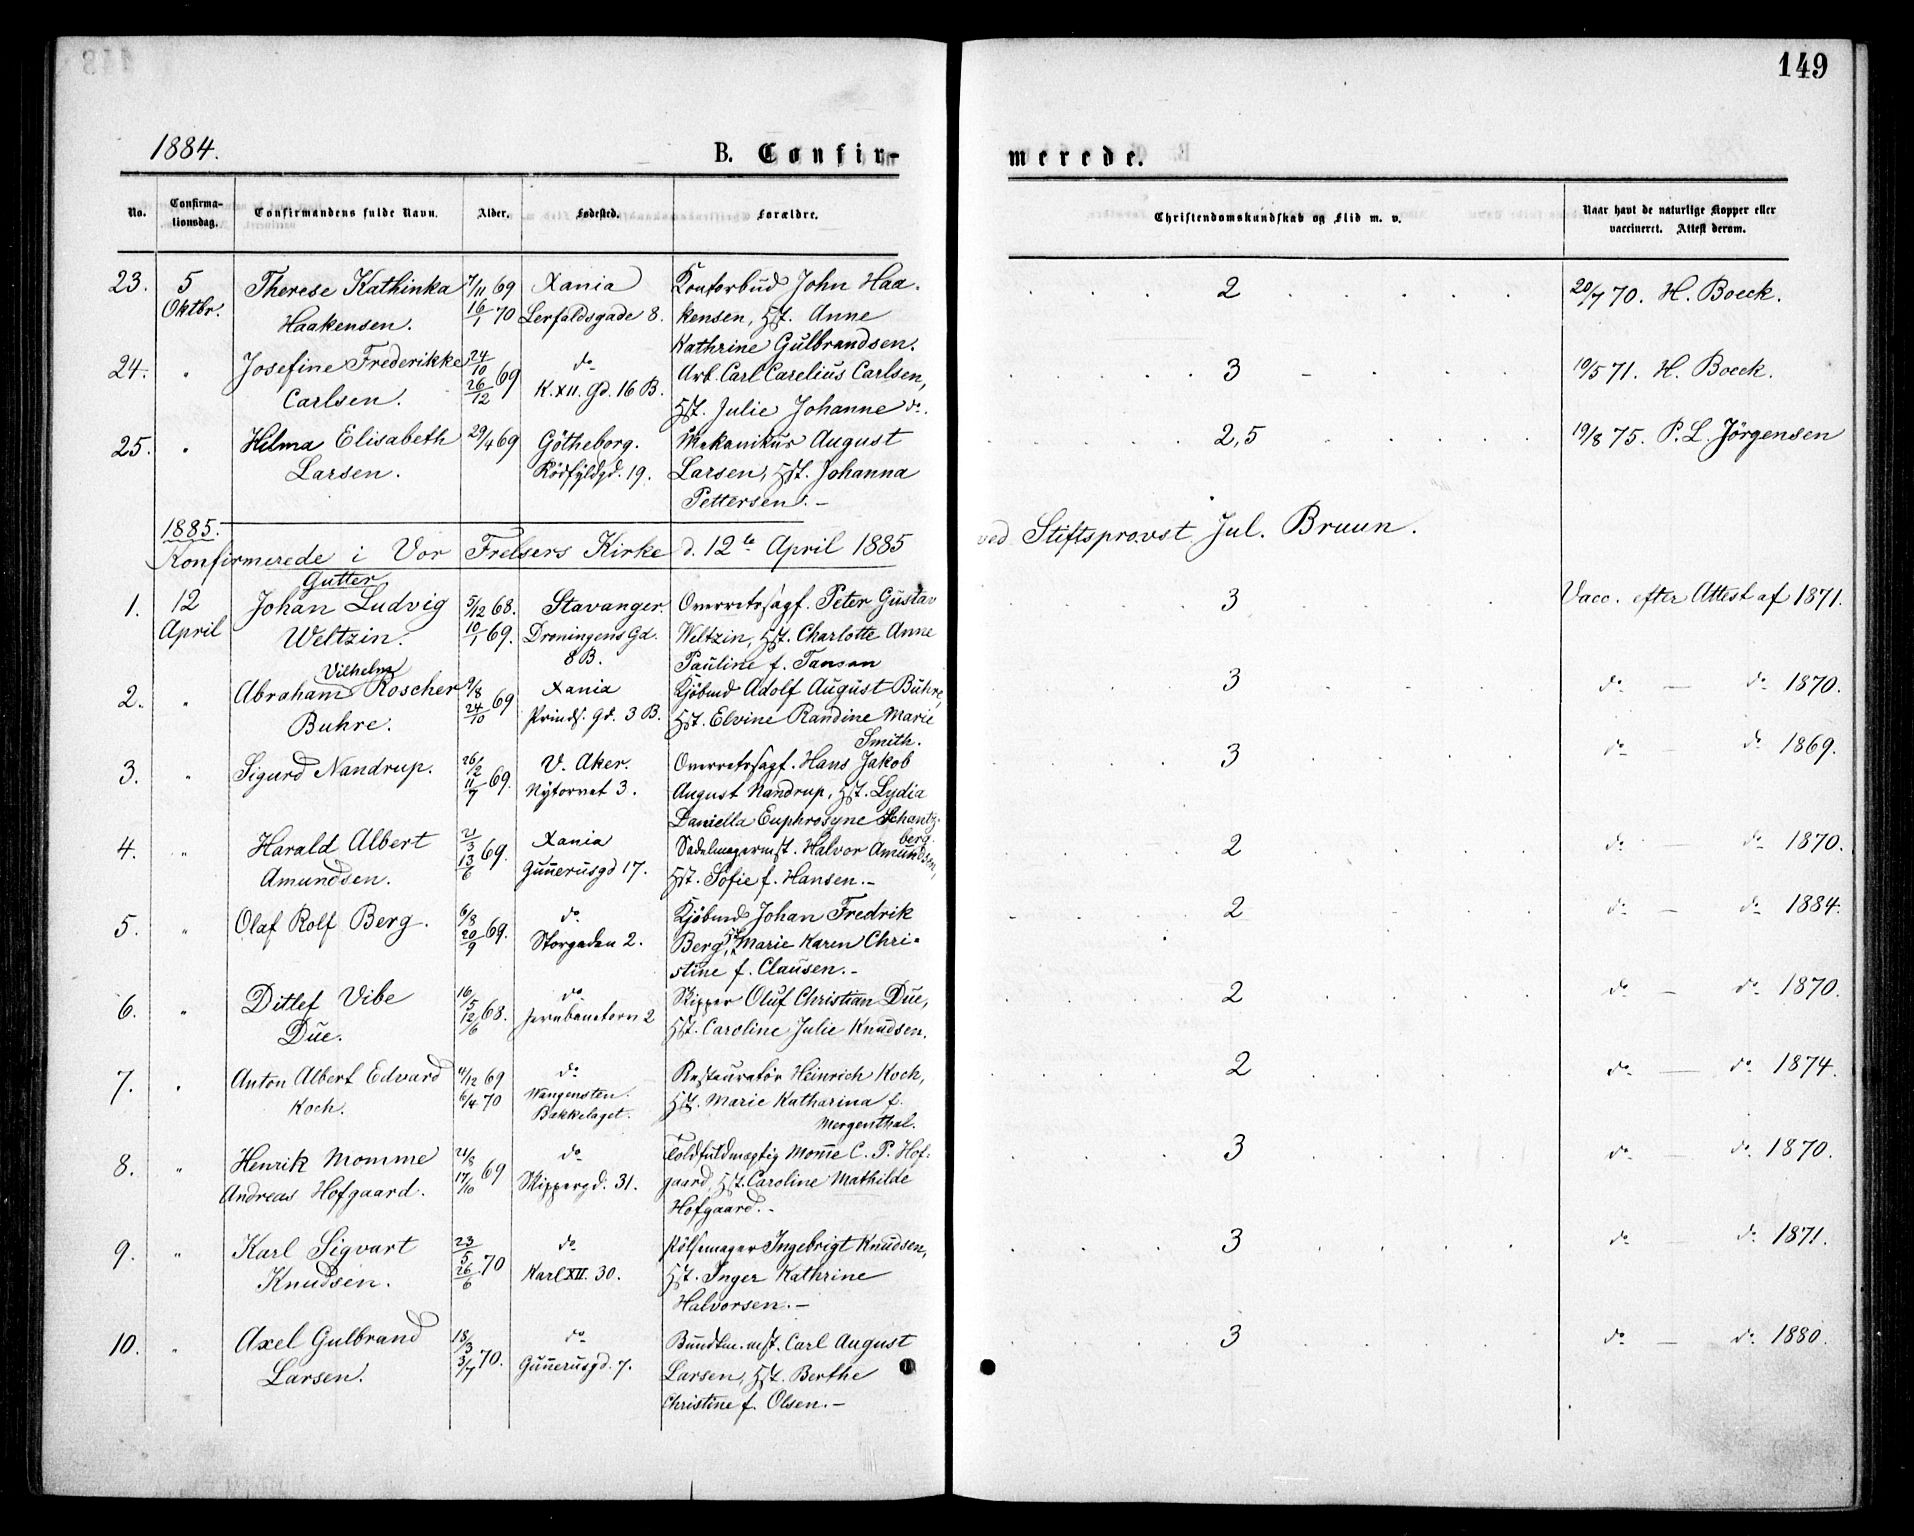 149
1884.
B. Confir-
merede.
No.
Confirma-
tionsdag.
Confirmandens fulde Navn.
Alder.
Fødested.
Forældre.
Christendomskundskab og Flid m. v.
Naar havt de naturlige Kopper eller
vaccineret. Attest derom.
23. 5 Oktbr.
Therese Kathinka
Haakensen.
7/11 69
16/1 70
Xania
Lerfaldsgade 8.
Kontorbud John Haa-
kensen, Hst. Anne
Kathrine Gulbrandsen.
2
20/7 70. H. Boeck.
24. "
Josefine Frederikke
Carlsen.
24/10 26/12 69
do
K. XII. Gd. 16 B.
Arb. Carl Carelius Carlsen,
Hst. Julie Johanne do.
3
19/5 71. H. Boeck.
25. "
Hilma Elisabeth
Larsen.
29/4 69
Götheborg.
Rödfyldgd. 19.
Mekanikus August
Larsen, Hst. Johanna
Pettersen. –
2,5
19/8 75. P. L. Jörgensen
1885.
Konfirmerede i Vor Frelsers Kirke d. 12te April 1885
ved Stiftsprovst Jul. Bruun.
Gutter
1. 12 April
Johan Ludvig
Weltzin.
5/12 68.
10/1 69.
Stavanger
Dronningens Gd.
8 B.
Overretssagf. Peter Gustav
Weltzin, Hst. Charlotte Anne
Pauline f. Tanson
3
Vacc. efter Attest af 1871.
2. "
Vilhelm
Abraham Roscher
Buhre.
9/8 24/10 69
Xania
Prinds. Gd. 3 B.
Kjöbmd Adolf August Buhre,
Hst. Elvine Randine Marie
Smith.
3
do — do 1870.
3. "
Sigurd Nandrup.
26/2 11/7 69.
V. Aker.
Nytorvet 3.
Overretssagf. Hans Jakob
August Nandrup, Hst. Lydia
Daniella Euphrosyne Schantz-
berg.
3
do — do 1869.
4. "
Harald Albert
Amundsen.
21/3 13/6 69.
Xania
Gunnerusgd 17.
Sadelmagermst. Halvor Amundsen,
Hst. Sofie f. Hansen. –
2
do — do 1870.
5. "
Olaf Rolf Berg.
6/8 20/9 69.
do
Storgaden 2.
Kjöbmd Johan Fredrik
Berg, Hst. Marie Karen Chri-
stine f. Clausen. –
2
do — do 1884.
6. "
Ditlef Vibe
Due.
16/5 12/6 68.
do
Jernbanetorv 2
Skipper Oluf Christian Due,
Hst. Caroline Julie Knudsen.
2
do — do 1870.
7. "
Anton Albert Edvard
Koch.
11/12 69
6/4 70
do
Wangensten.
Bækkelaget.
Restauratør Heinrich Koch,
Hst. Marie Katharina f.
Mergenthal.
2
do — do 1874.
8. "
Henrik Momme
Andreas Hofgaard.
21/8 17/10 69
do
Skippergd. 31.
Toldfuldmægtig Momme C. P. Hof-
gaard, Hst. Caroline Mathilde
Hofgaard. –
3
do — do 1870.
9. "
Karl Sigvart
Knudsen.
23/5 26/6 70
do
Karl XII. 30.
Pølsemager Ingebrigt Knudsen,
Hst. Inger Kathrine
Halvorsen. –
3
do — do 1871.
10. "
Axel Gulbrand
Larsen.
18/3 3/7 70.
do
Gunnerusgd. 7.
Bundtm.mst. Carl August
Larsen, Hst. Berthe
Christine f. Olsen. –
3
do — do 1880.